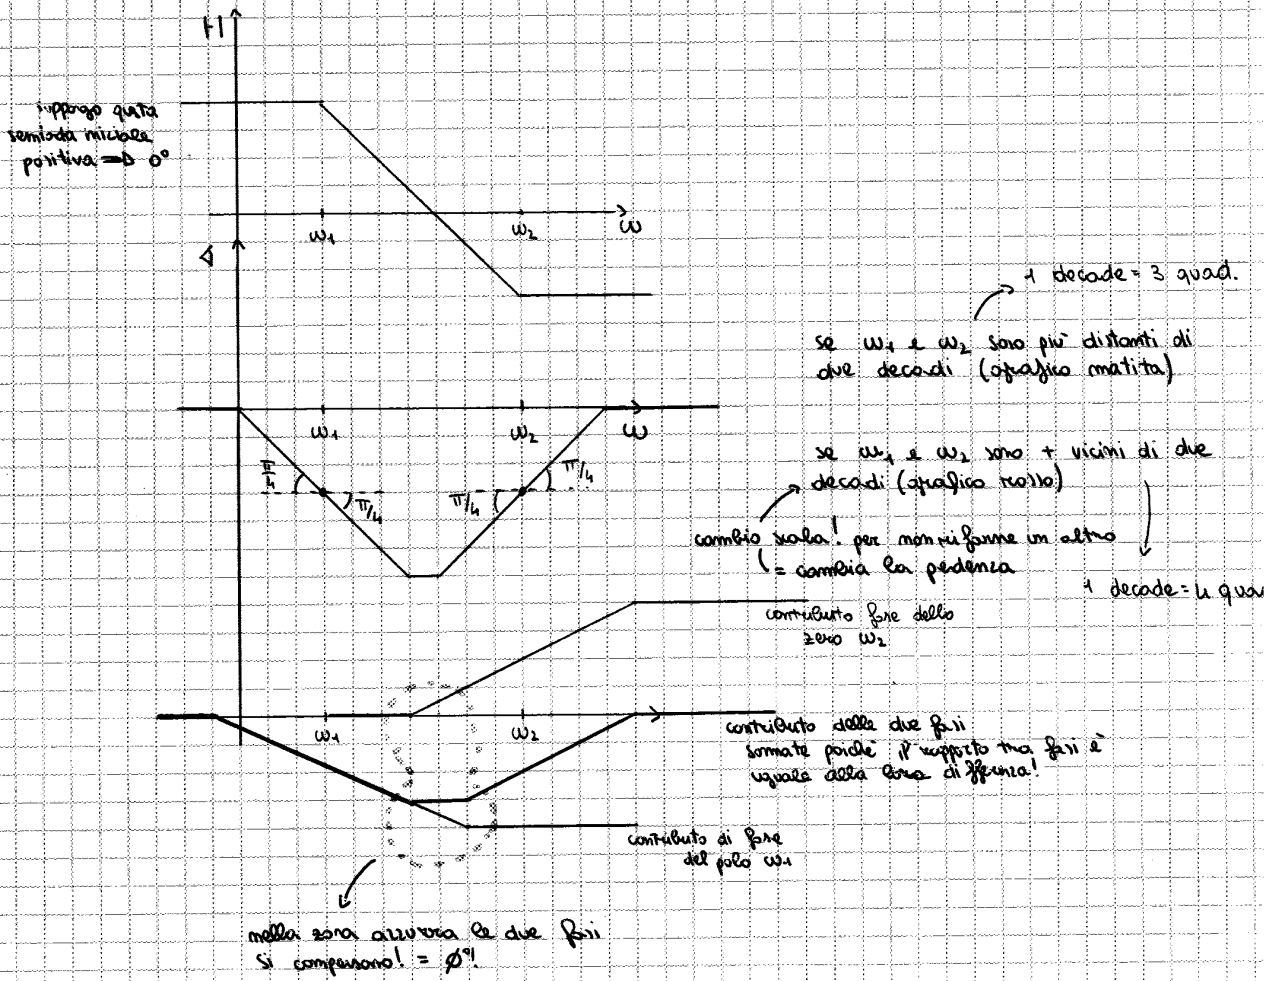 |H|
suppongo questa
semionda iniziale
positiva => 0°
ω1
ω2
ω
∠
1 decade = 3 quad.
se ω1 e ω2 sono più distanti di
due decadi (grafico matita)
ω1
ω2
ω
π/4
π/4
π/4
π/4
se ω1 e ω2 sono + vicini di due
decadi (grafico rosso)
cambio scala! per non rifarne un altro
= cambia la pendenza
1 decade = 4 quad
contributo fase dello
zero ω2
ω1
ω2
contributo delle due fasi
sommate poiché il rapporto tra fasi è
uguale alla loro differenza!
contributo di fase
del polo ω1
nella zona azzurra le due fasi
si compensano! = 0°!